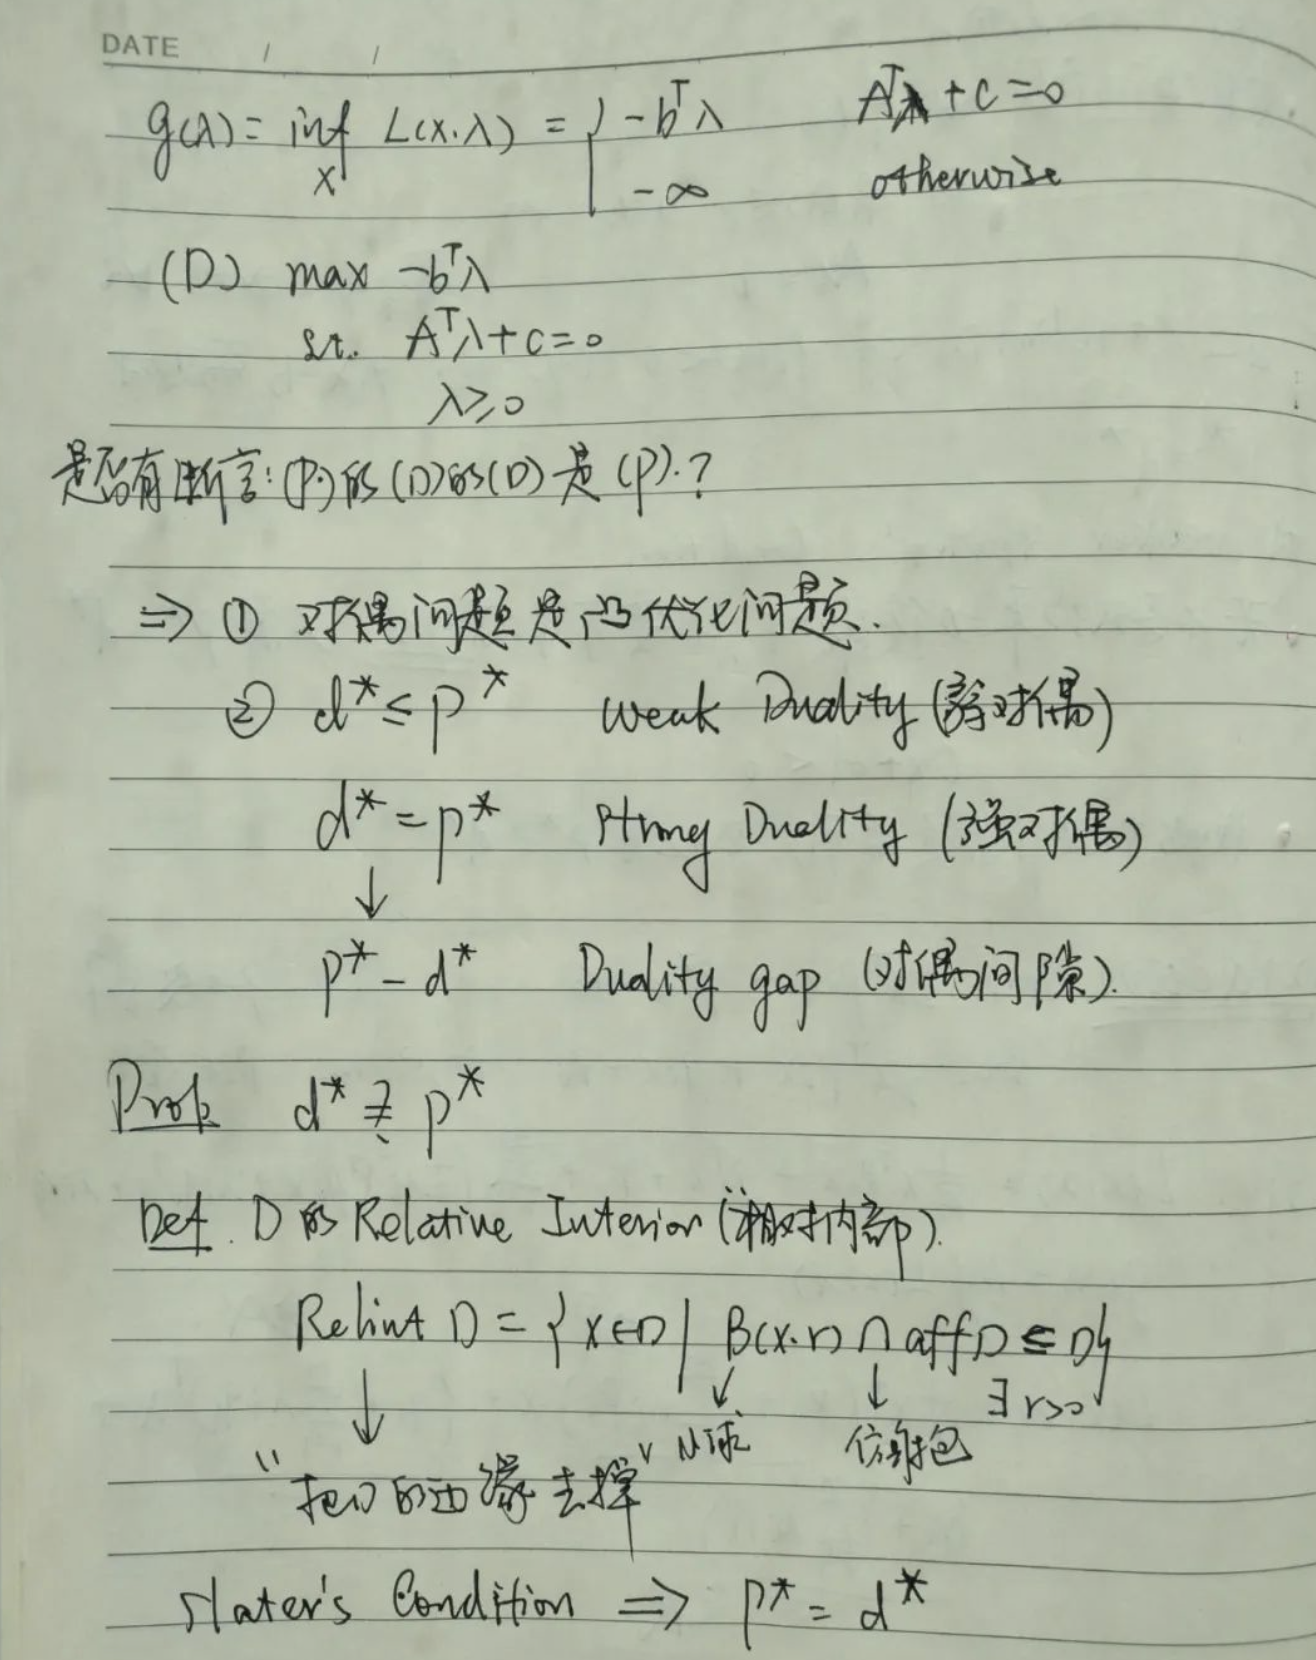 DATE / /
g(λ) = inf L(x.λ) = { -bᵀλ Aᵀλ + c = 0
x -∞ otherwise
(D) max -bᵀλ
st. Aᵀλ + c = 0
λ ≥ 0
是否有断言: (P)的(D)的(D)是(P).?
⇒ ① 对偶问题是凸优化问题.
② d* ≤ p* Weak Duality (弱对偶)
d* = p* Strong Duality (强对偶)
↓
p* - d* Duality gap (对偶间隙).
Prob. d* p*
Def. D的 Relative Interior (相对内部).
Relint D = { x∈D | B(x.r) ∩ aff D ⊆ D }
↓ ↙ ↓ ∃ r>0
球 仿射包
"把D的边缘去掉"
Slater's Condition ⇒ p* = d*